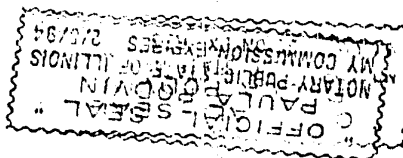 " OFFICIAL SEAL "
PAULA
NOTARY PUBLIC STATE OF ILLINOIS
MY COMMISSION EXPIRES
2/5/94